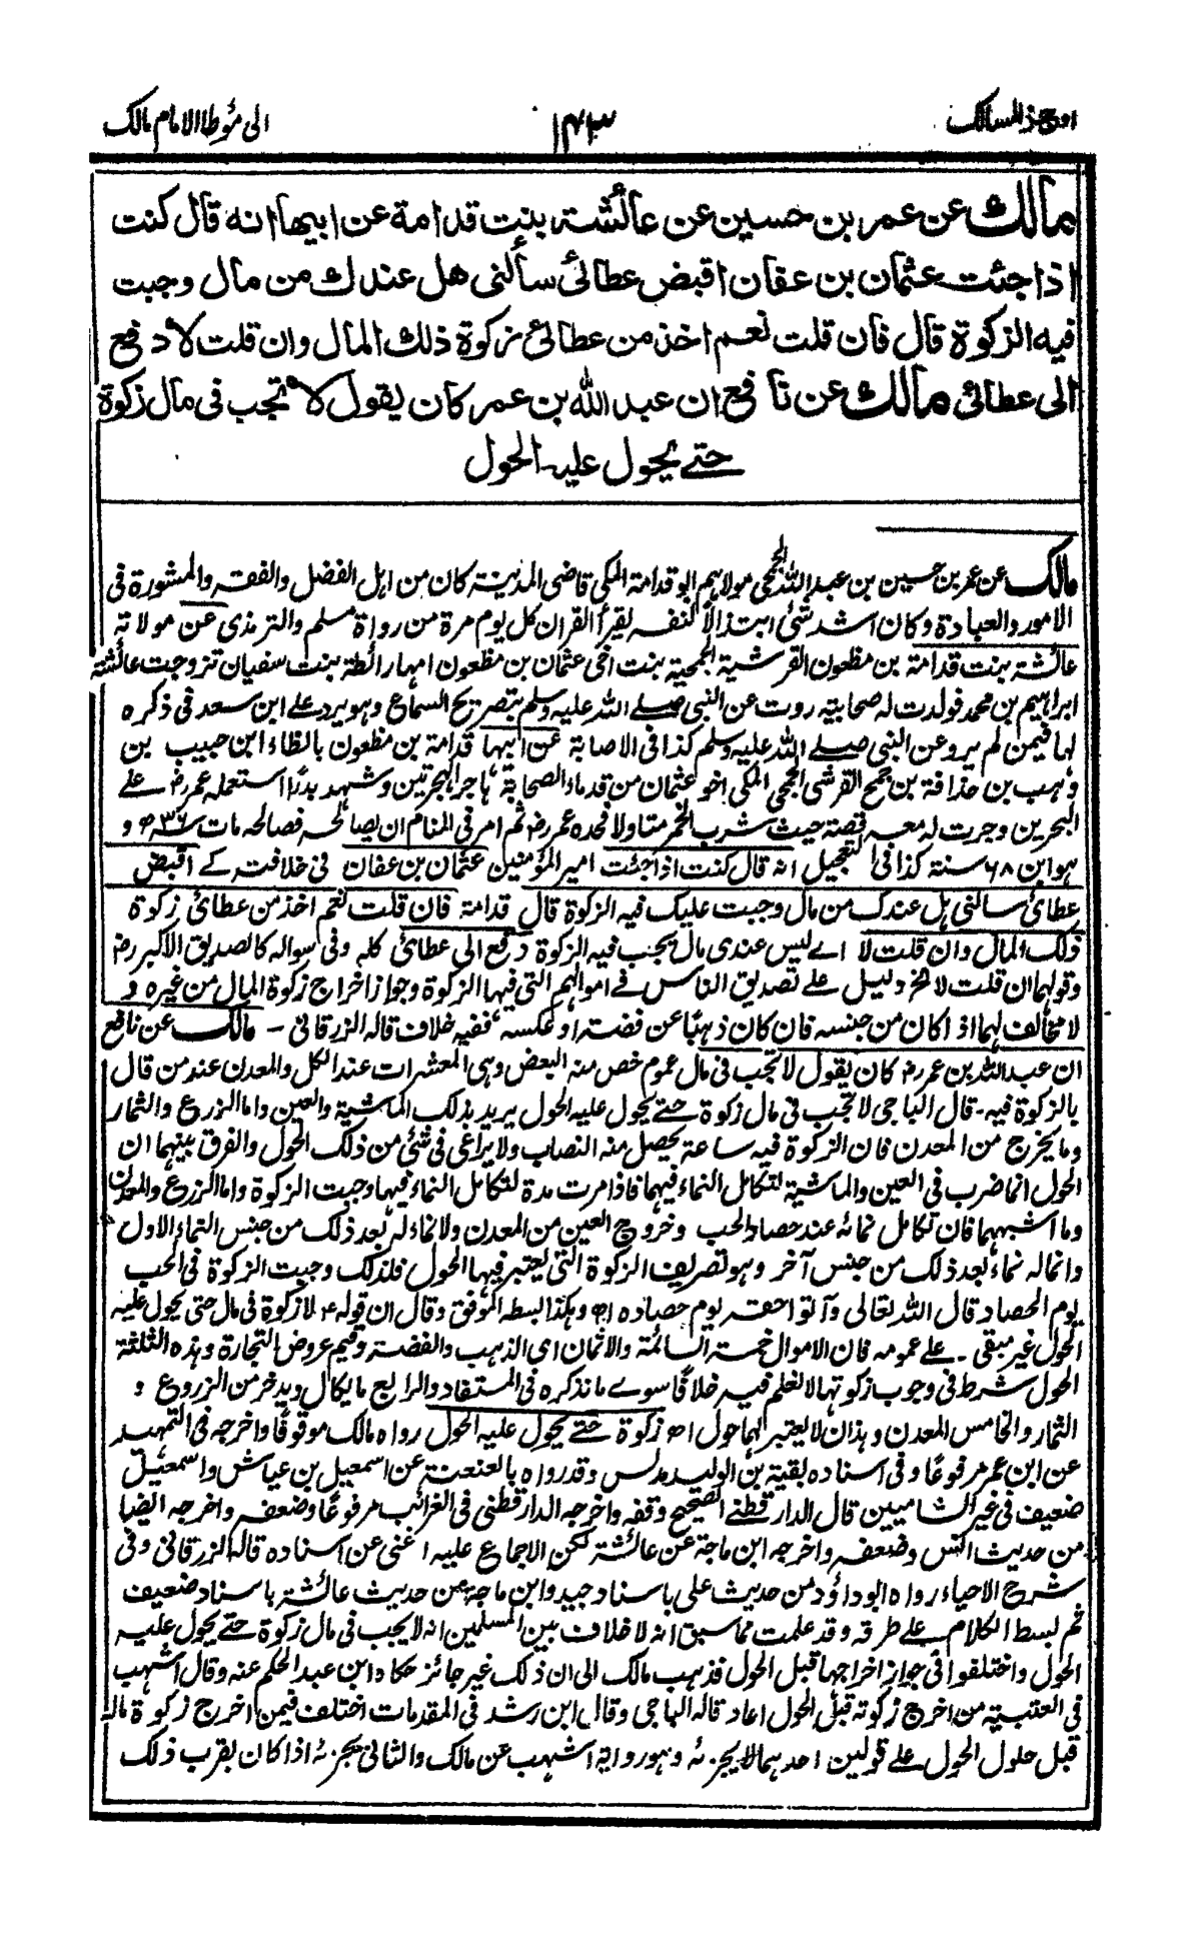 اوجز المسالك
١٤٣
الى مؤطا الامام مالك
مالك عن عمر بن حسين عن عائشة بنت قدامة عن ابيها انه قال كنت
اذا جئت عثمان بن عفان اقبض عطائي سألني هل عندك من مال وجبت
فيه الزكوة قال فان قلت نعم اخذ من عطائي زكوة ذلك المال وان قلت لا دفع
الى عطائي مالك عن نافع ان عبد الله بن عمر كان يقول لا تجب في مال زكوة
حتى يحول عليه الحول
مالك عن عمر بن حسين بن عبد الله الجمحي مولاهم ابو قدامة المكي قاضي المدينة كان من اهل الفضل والفقه والمشورة في
الامور والعبادة وكان اشد شئ ابتذالا لنفسه يقرأ القران كل يوم مرة من رواة مسلم والترمذي عن مولاته
عائشة بنت قدامة بن مظعون القرشية الجمحية بنت اخي عثمان بن مظعون امها رائطة بنت سفيان تزوجت عائشة
ابراهيم بن محمد فولدت له صحابية روت عن النبي صلى الله عليه وسلم بتصريح السماع وهو يرد على ابن سعد في ذكره
لها فيمن لم يرو عن النبي صلى الله عليه وسلم كذا في الاصابة عن ابيها قدامة بن مظعون بالظاء ابن حبيب بن
وهب بن حذافة بن جمح القرشي الجمحي المكي اخو عثمان من قدماء الصحابة هاجر الهجرتين وشهد بدرا استعمله عمر رض على
البحرين وجرت له معه قصة حيث شرب الخمر متاولا فحده عمر رض ثم امر في المنام ان يصالحه فصالحه مات سنة ٣٦ھ و
هو ابن ٦٨ سنة كذا في التعجيل انه قال كنت اذا جئت امير المؤمنين عثمان بن عفان في خلافته كے اقبض
عطائي سالني هل عندك من مال وجبت عليك فيه الزكوة قال قدامة فان قلت نعم اخذ من عطائي زكوة
ذلك المال وان قلت لا اے ليس عندي مال يجب فيه الزكوة دفع الى عطائي كله وفي سواله كالصديق الاكبر رض
وقولهما ان قلت لا الخ دليل على تصديق الناس في اموالهم التي فيها الزكوة وجواز اخراج زكوة المال من غيره و
لا مخالف لهما اذا كان من جنسه فان كان ذهبا عن فضة او عكسه ففيه خلاف قاله الزرقاني - مالك عن نافع
ان عبد الله بن عمر رض كان يقول لا تجب في مال عموم خص منه البعض وهي المعشرات عند الكل والمعدن عند من قال
بالزكوة فيه - قال الباجي لا تجب في مال زكوة حتى يحول عليه الحول يريد بذلك الماشية والعين واما الزرع والثمار
وما يخرج من المعدن فان الزكوة فيه ساعة يحصل منه النصاب ولا يراعى في شئ من ذلك الحول والفرق بينهما ان
الحول انما ضرب في العين والماشية لتكامل النماء فيهما فاذا مرت مدة لتكامل النماء فيها وجبت الزكوة واما الزرع والمعدن
وما اشبههما فان تكامل نمائه عند حصاد الحب وخروج العين من المعدن ولا نماء له بعد ذلك من جنس النماء الاول
وانما له نماء بعد ذلك من جنس آخر وهو تصريف الزكوة التي يعتبر فيها الحول فلذلك وجبت الزكوة في الحب
يوم الحصاد قال الله تعالى وآتوا حقه يوم حصاده اھ وهكذا بسطه الموفق وقال ان قوله ع لا زكوة في مال حتى يحول عليه
الحول غير مبقى - على عمومه فان الاموال خمسة السائمة والاثمان اى الذهب والفضة وقيم عروض التجارة وهذه الثلثة
الحول شرط في وجوب زكوتها لا نعلم فيه خلافا سوے ما نذكره في المستفاد والرابع ما يكال ويدخر من الزروع و
الثمار والخامس المعدن وهذان لا يعتبر لهما حول اھ زكوة حتى يحول عليه الحول رواه مالك موقوفا واخرجه في التمهيد
عن ابن عمر مرفوعا وفي اسناده بقية بن الوليد مدلس وقد رواه بالعنعنة عن اسمعيل بن عياش واسمعيل
ضعيف في غير الشاميين قال الدارقطني الصحيح وقفه واخرجه الدارقطني في الغرائب مرفوعا وضعفه واخرجه ايضا
من حديث انس وضعفه واخرجه ابن ماجة عن عائشة لكن الاجماع عليه اغنى عن اسناده قاله الزرقاني وفي
شرح الاحياء رواه ابو داؤد من حديث علي باسناد جيد وابن ماجة من حديث عائشة باسناد ضعيف
ثم بسط الكلام على طرقه وقد علمت مما سبق انه لا خلاف بين المسلمين انه لا يجب في مال زكوة حتى يحول عليه
الحول واختلفوا في جواز اخراجها قبل الحول فذهب مالك الى ان ذلك غير جائز حكاه ابن عبد الحكم عنه وقال اشهب
في العتبية من اخرج زكوته قبل الحول اعاد قاله الباجي وقال ابن رشد في المقدمات اختلف فيمن اخرج زكوة ماله
قبل حلول الحول على قولين احدهما لا يجزئه وهو رواية اشهب عن مالك والثاني يجزئه اذا كان بقرب ذلك